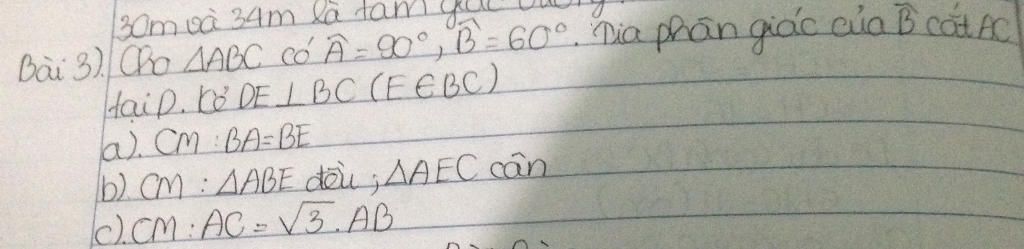 30m và 34m là tam giác
Bài 3). Cho ΔABC có Â = 90°, B̂ = 60°. Tia phân giác của B̂ cắt AC
tại D. Kẻ DE ⊥ BC (E ∈ BC)
a). CM : BA = BE
b). CM : ΔABE đều ; ΔAEC cân
c). CM : AC = √3 . AB